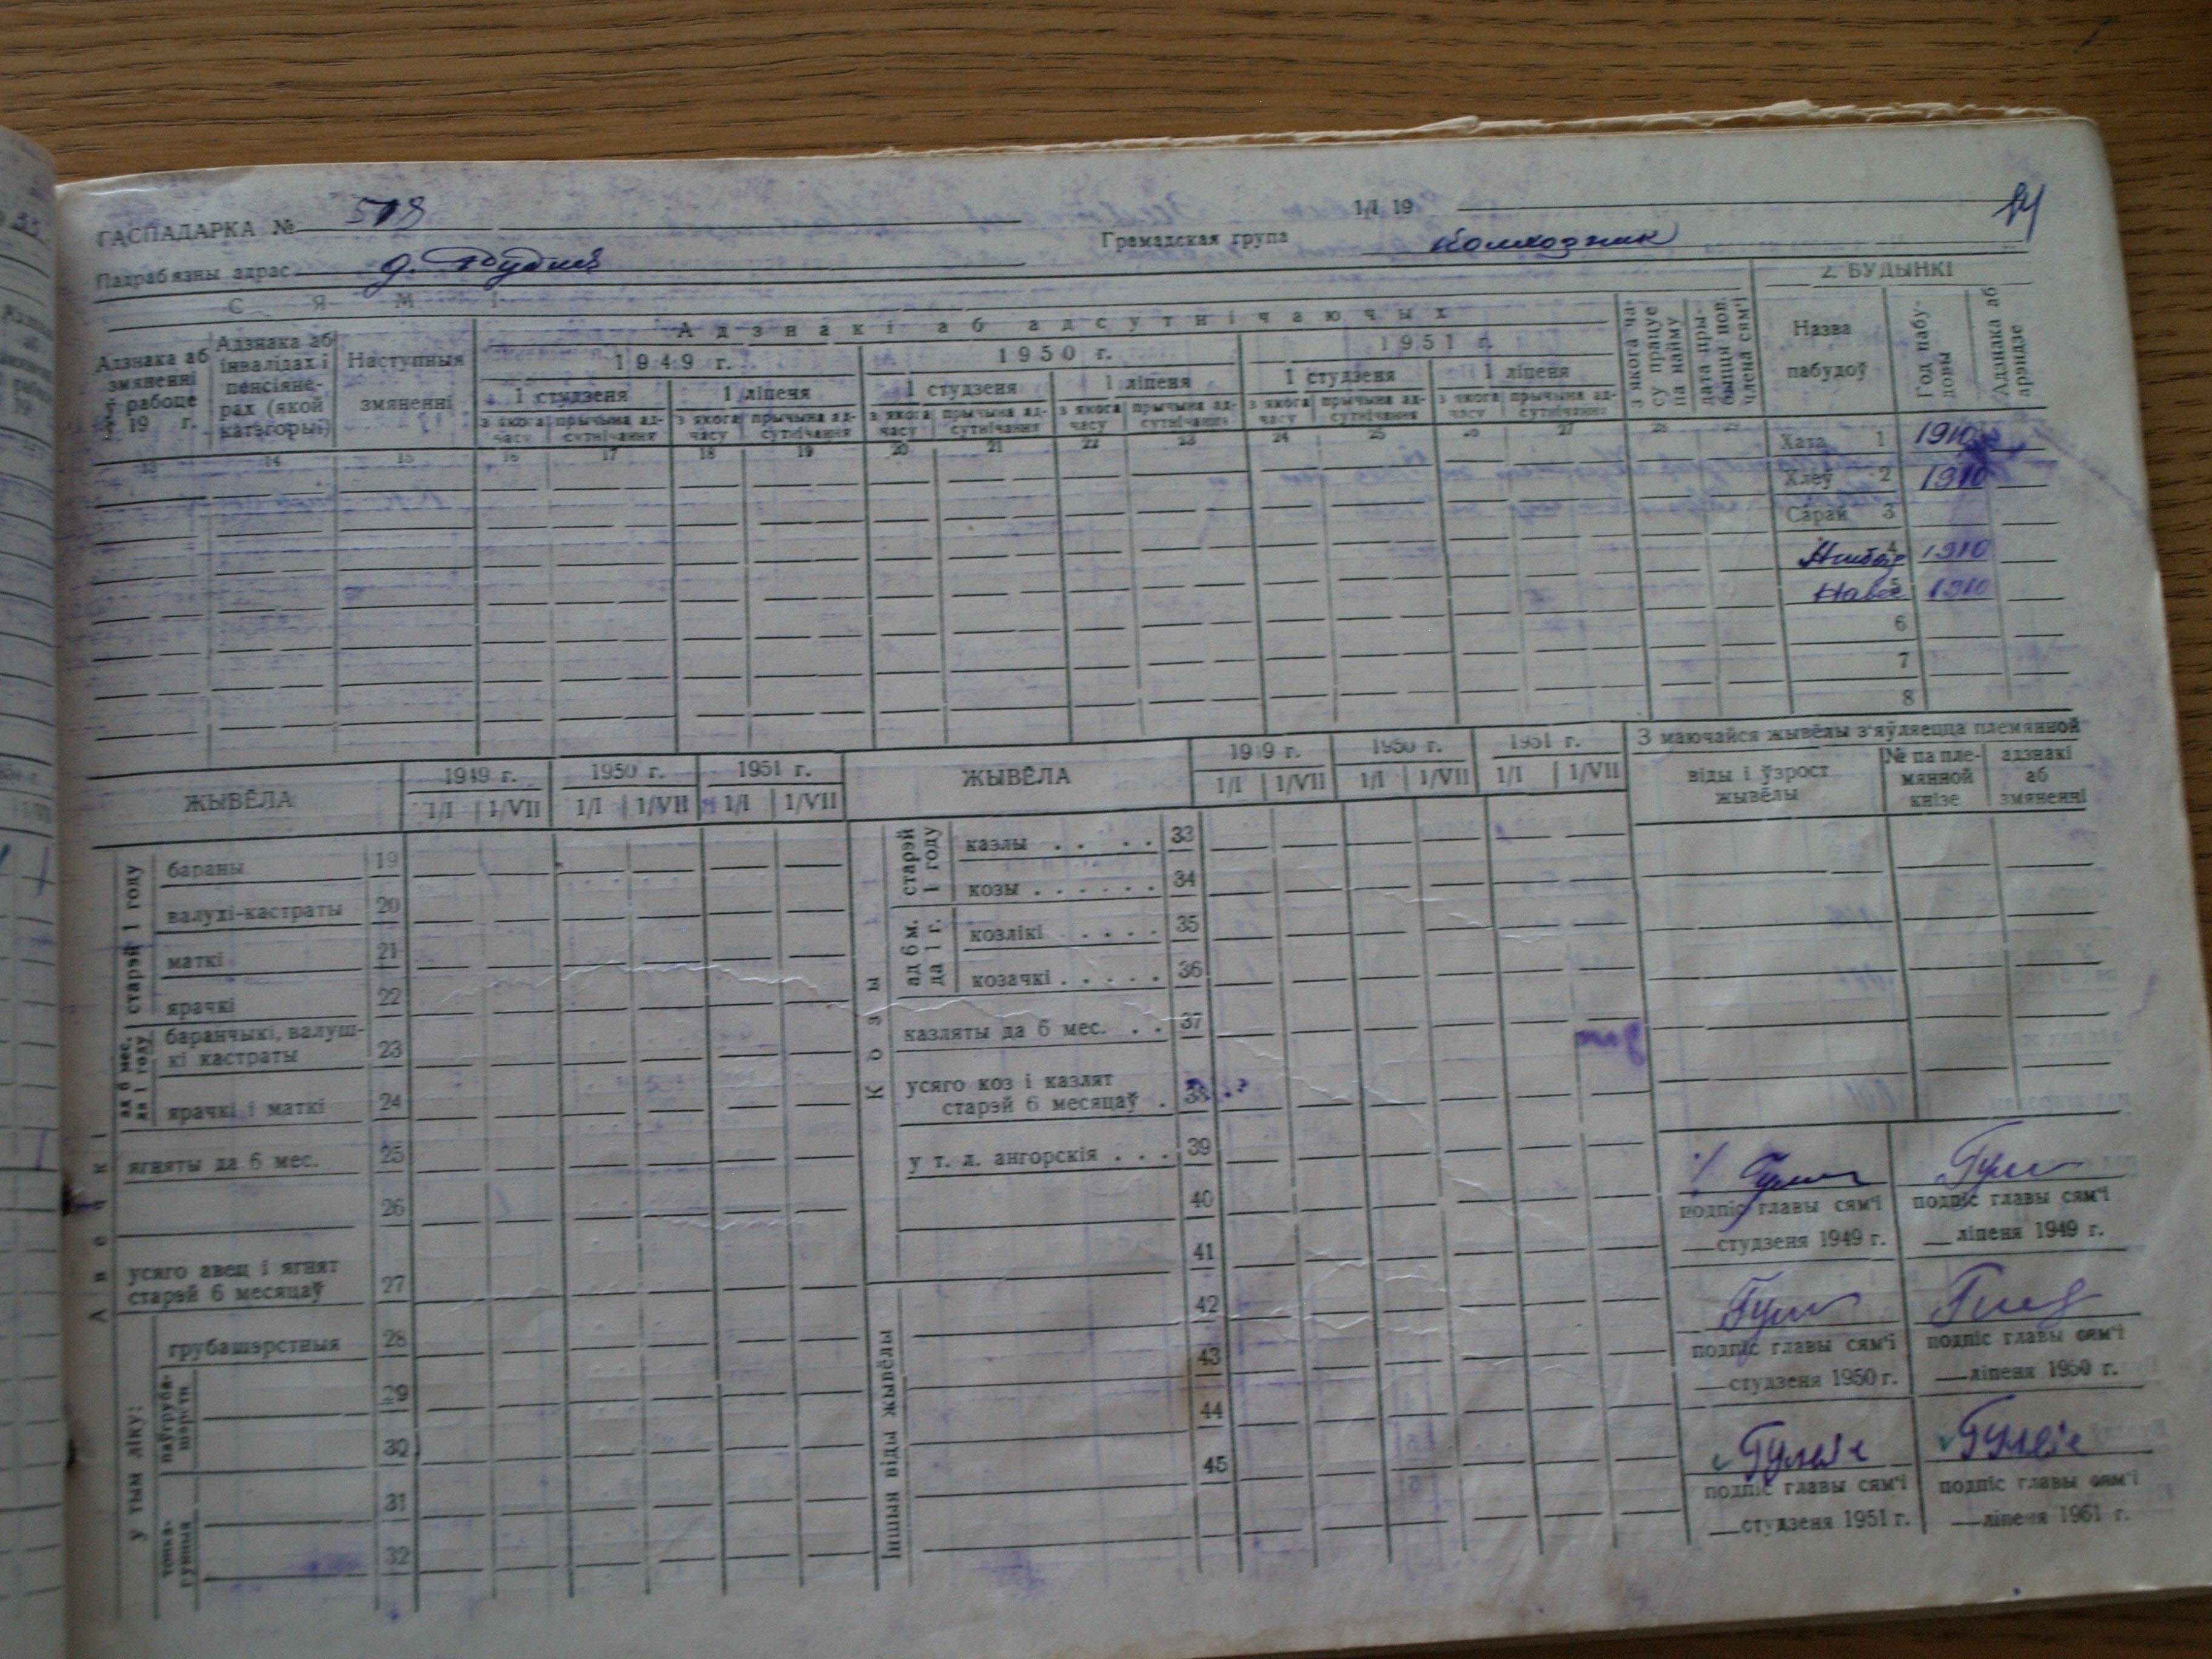 ГАСПАДАРКА №
1/I 19
Падрабязны адрас
Грамадская група колхозник
С Я М І
2. БУДЫНКІ
Адзнака аб змяненні рабоце 19 г.
Адзнака аб інвалідах і пенсіянерах (якой катэгорыі)
Наступныя змяненні
Адзнакі аб адсутнічаючых
1949 г.
1950 г.
1951 г.
1 студзеня
1 ліпеня
1 студзеня
1 ліпеня
1 студзеня
1 ліпеня
з якога часу
прычына адсутнічання
з якога часу
прычына адсутнічання
з якога часу
прычына адсутнічання
з якога часу
прычына адсутнічання
з якога часу
прычына адсутнічання
з якога часу
прычына адсутнічання
з якога часу працуе па найму
дата прыбыцця нов. члена сям'і
Назва пабудоў
Год пабудовы
Адзнака аб арэндзе
13 14 15 16 17 18 19 20 21 22 23 24 25 26 27 28 29
Хата 1 1910
Хлеў 2 1910
Сарай 3
4 1910
5 1910
6
7
8
ЖЫВЁЛА
1949 г.
1950 г.
1951 г.
1/I 1/VII 1/I 1/VII 1/I 1/VII
Авечкі
старэй 1 году
бараны 19
валухі-кастраты 20
маткі 21
ярачкі 22
ад 6 мес. да 1 году
баранчыкі, валушкі кастраты 23
ярачкі і маткі 24
ягняты да 6 мес. 25
26
усяго авец і ягнят старэй 6 месяцаў 27
у тым ліку:
грубашэрстныя 28
29
30
31
32
ЖЫВЁЛА
1949 г.
1950 г.
1951 г.
1/I 1/VII 1/I 1/VII 1/I 1/VII
Козы
старэй 1 году
казлы 33
козы 34
ад 6 м. да 1 г.
козлікі 35
козачкі 36
казляты да 6 мес. 37
усяго коз і казлят старэй 6 месяцаў 38
у т. л. ангорскія 39
40
41
Іншыя віды жывёлы
42
43
44
45
З маючайся жывёлы з'яўляецца племянной
віды і ўзрост жывёлы
№ па племянной кнізе
адзнакі аб змяненні
подпіс главы сям'і
студзеня 1949 г.
подпіс главы сям'і
ліпеня 1949 г.
подпіс главы сям'і
студзеня 1950 г.
подпіс главы сям'і
ліпеня 1950 г.
подпіс главы сям'і
студзеня 1951 г.
подпіс главы сям'і
ліпеня 1951 г.